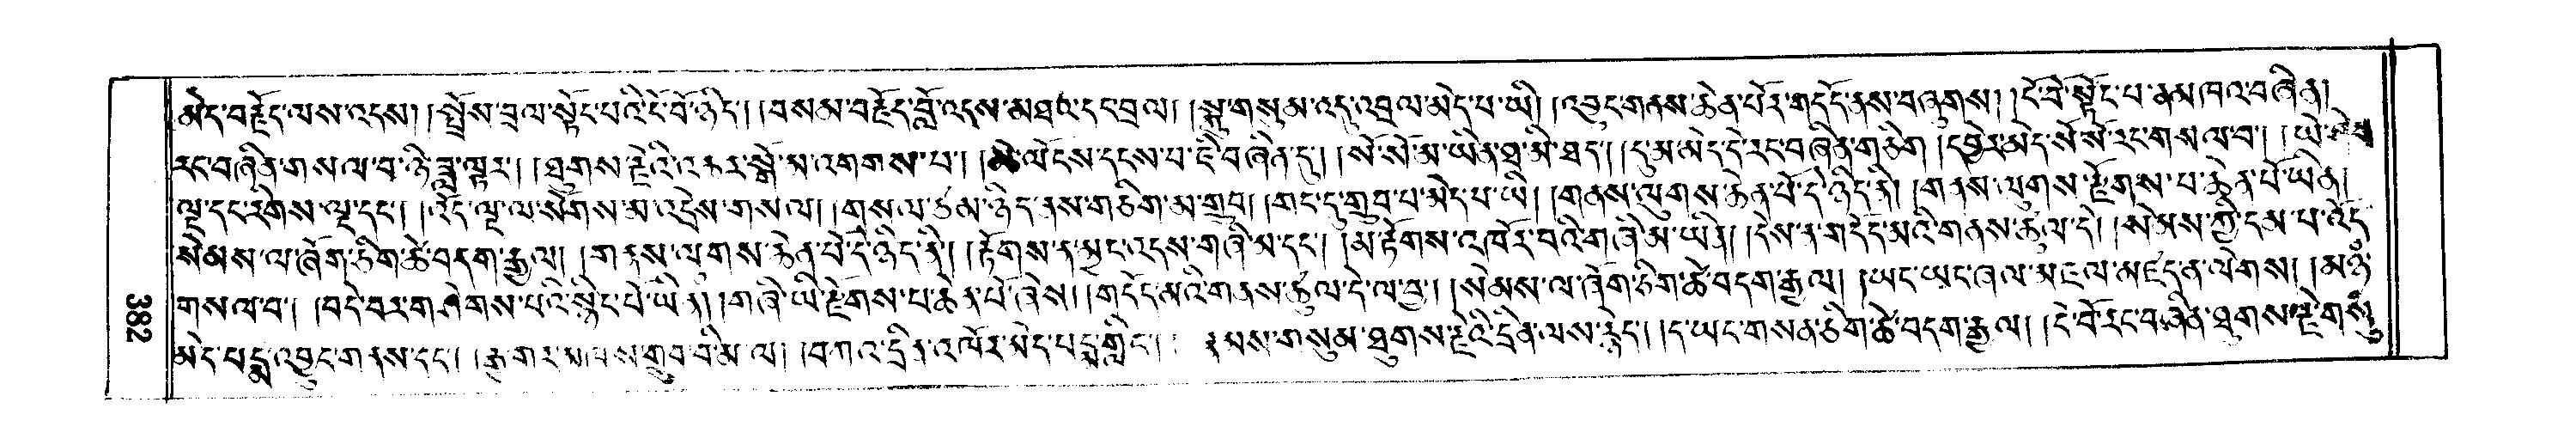 མེད་བརྗོད་ལས་འདས། །སྤྲོས་བྲལ་སྟོང་པའི་ངོ་བོ་ཉིད། །བསམ་བརྗོད་བློ་འདས་མཐའ་དང་བྲལ། །སྐུ་གསུམ་འདུ་འབྲལ་མེད་པ་ཡི། །འབྱུང་གནས་ཆེན་པོར་གདོད་ནས་བཞུགས། །ངོ་བོ་སྟོང་པ་ནམ་མཁའ་བཞིན།
རང་བཞིན་གསལ་བ་ཉི་ཟླ་ལྟར། །ཐུགས་རྗེའི་འཆར་སྒོ་མ་འགགས་པ། །མེ་ལོང་དྭངས་པ་ཇི་བཞིན་དུ། །སོ་སོ་མ་ཡིན་ཐ་མི་དད། །དུ་མ་མེད་དེ་རང་བཞིན་གཅིག །དབྱེར་མེད་སོ་སོ་རང་གསལ་བ། །ཡེ་ཤེས
ལྔ་དང་རིགས་ལྔ་དང་། །འོད་ལྔ་ལ་སོགས་མ་འདྲེས་གསལ། །གསལ་ཙམ་ཉིད་ནས་གཅིག་མ་གྲུབ། །གང་དུ་གྲུབ་པ་མེད་པ་ཡི། །གནས་ལུགས་ཆེན་པོ་དེ་ཉིད་ནི། །གནས་ལུགས་རྫོགས་པ་ཆེན་པོ་ཡིན།
སེམས་ལ་ཞོག་ཅིག་ཚེ་བདག་རྒྱལ། །གནས་ལུགས་ཆེན་པོ་དེ་ཉིད་ནི། །རྟོགས་ན་མྱང་འདས་གཞི་མ་དང་། །མ་རྟོགས་འཁོར་བའི་གཞི་མ་ཡིན། །དེས་ན་གདོད་མའི་གནས་ཚུལ་དེ། །སེམས་ཀྱི་དམ་པ་འོད
གསལ་བ། །བདེ་བར་གཤེགས་པའི་སྙིང་པོ་ཡིན། །གཞི་ཡི་རྫོགས་པ་ཆེན་པོ་ཞེས། །གདོད་མའི་གནས་ཚུལ་དེ་ལ་བྱ། །སེམས་ལ་ཞོག་ཅིག་ཚེ་བདག་རྒྱལ། །ཡང་ཡང་ཞལ་མཇལ་མཛད་ན་ལེགས། །མ་ཉུ
མེད་པདྨ་འབྱུང་གནས་དང་། །རྒྱ་གར་མཁས་གྲུབ་བི་མ་ལ། །བཀའ་དྲིན་འཁོར་མེད་པདྨ་གླིང་། །རྣམས་གསུམ་ཐུགས་རྗེའི་དྲིན་ལས་རྙེད། །ད་ཡང་གསན་ཅིག་ཚེ་བདག་རྒྱལ། །ངོ་བོ་རང་བཞིན་ཐུགས་རྗེ་གསུ